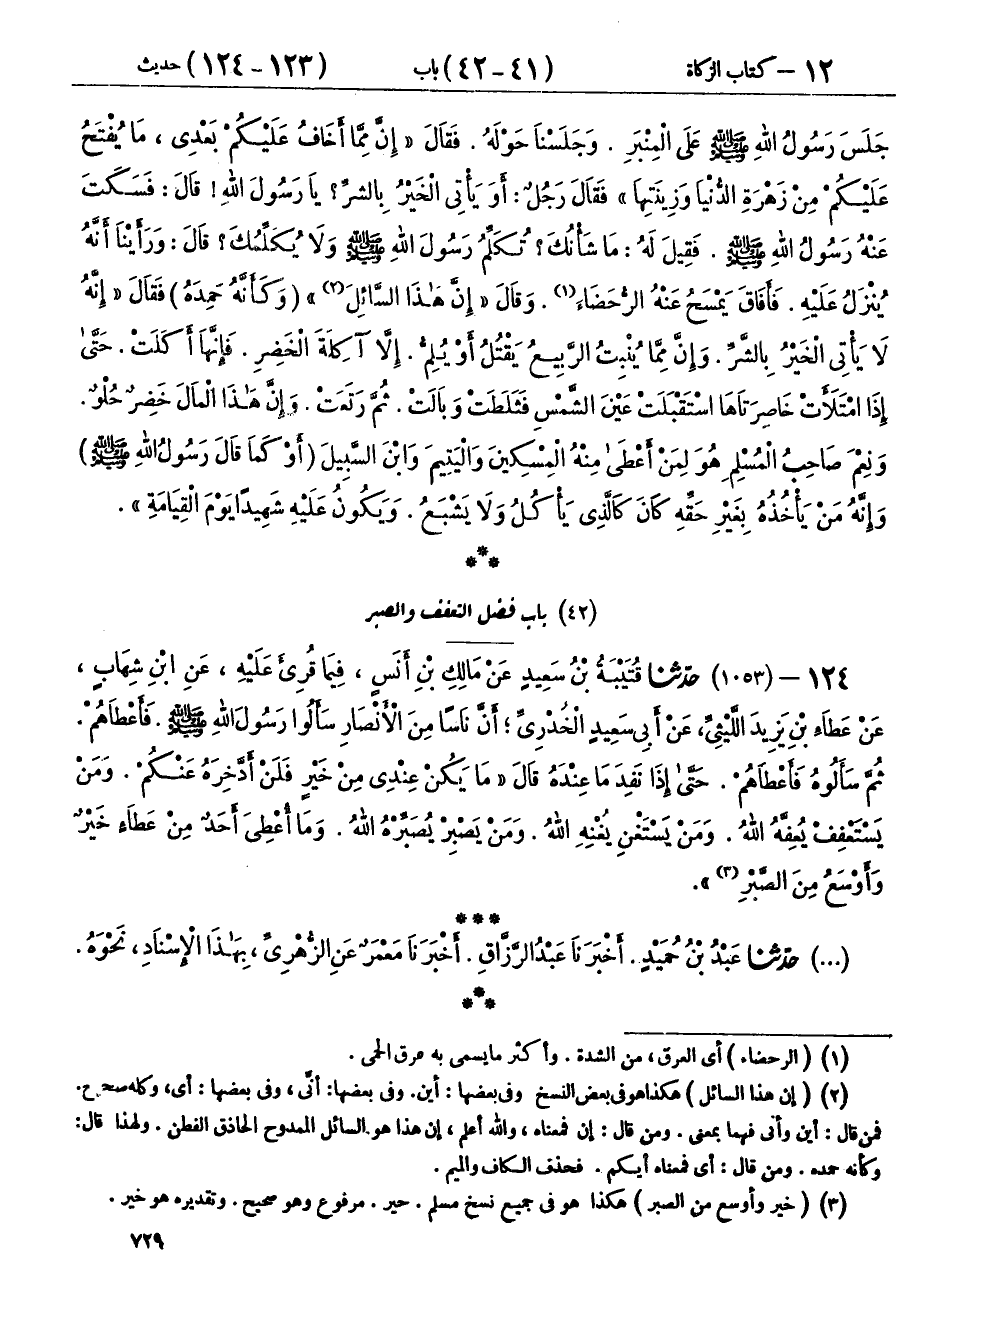 ١٢ – كتاب الزكاة (٤١-٤٢) باب (١٢٣-١٢٤) حديث
جَلَسَ رَسُولُ اللهِ ﷺ عَلَى الْمِنْبَرِ . وَجَلَسْنَا حَوْلَهُ . فَقَالَ « إِنَّ مِمَّا أَخَافُ عَلَيْكُمْ بَعْدِى ، مَا يُفْتَحُ
عَلَيْكُمْ مِنْ زَهْرَةِ الدُّنْيَا وَزِينَتِهَا » فَقَالَ رَجُلٌ : أَوَ يَأْتِى الْخَيْرُ بِالشَّرِّ ؟ يَا رَسُولَ اللهِ ! قَالَ : فَسَكَتَ
عَنْهُ رَسُولُ اللهِ ﷺ . فَقِيلَ لَهُ : مَا شَأْنُكَ ؟ تُكَلِّمُ رَسُولَ اللهِ ﷺ وَلَا يُكَلِّمُكَ ؟ قَالَ : وَرَأَيْنَا أَنَّهُ
يُنْزَلُ عَلَيْهِ . فَأَفَاقَ يَمْسَحُ عَنْهُ الرُّحَضَاءَ (١) . وَقَالَ « إِنَّ هَٰذَا السَّائِلَ (٢) » ( وَكَأَنَّهُ حَمِدَهُ ) فَقَالَ « إِنَّهُ
لَا يَأْتِى الْخَيْرُ بِالشَّرِّ . وَإِنَّ مِمَّا يُنْبِتُ الرَّبِيعُ يَقْتُلُ أَوْ يُلِمُّ . إِلَّا آكِلَةَ الْخَضِرِ . فَإِنَّهَا أَكَلَتْ . حَتَّىٰ
إِذَا امْتَلَأَتْ خَاصِرَتَاهَا اسْتَقْبَلَتْ عَيْنَ الشَّمْسِ فَثَلَطَتْ وَبَالَتْ . ثُمَّ رَتَعَتْ . وَإِنَّ هَٰذَا الْمَالَ خَضِرٌ حُلْوٌ .
وَنِعْمَ صَاحِبُ الْمُسْلِمِ هُوَ لِمَنْ أَعْطَىٰ مِنْهُ الْمِسْكِينَ وَالْيَتِيمَ وَابْنَ السَّبِيلِ ( أَوْ كَمَا قَالَ رَسُولُ اللهِ ﷺ )
وَإِنَّهُ مَنْ يَأْخُذُهُ بِغَيْرِ حَقِّهِ كَانَ كَالَّذِى يَأْكُلُ وَلَا يَشْبَعُ . وَيَكُونُ عَلَيْهِ شَهِيدًا يَوْمَ الْقِيَامَةِ » .
***
(٤٢) باب فضل التعفف والصبر
١٢٤ – (١٠٥٣) حَدَّثَنَا قُتَيْبَةُ بْنُ سَعِيدٍ عَنْ مَالِكِ بْنِ أَنَسٍ ، فِيمَا قُرِئَ عَلَيْهِ ، عَنِ ابْنِ شِهَابٍ ،
عَنْ عَطَاءِ بْنِ يَزِيدَ اللَّيْثِىِّ ، عَنْ أَبِى سَعِيدٍ الْخُدْرِىِّ ؛ أَنَّ نَاسًا مِنَ الْأَنْصَارِ سَأَلُوا رَسُولَ اللهِ ﷺ . فَأَعْطَاهُمْ .
ثُمَّ سَأَلُوهُ فَأَعْطَاهُمْ . حَتَّىٰ إِذَا نَفِدَ مَا عِنْدَهُ قَالَ « مَا يَكُنْ عِنْدِى مِنْ خَيْرٍ فَلَنْ أَدَّخِرَهُ عَنْكُمْ . وَمَنْ
يَسْتَعْفِفْ يُعِفَّهُ اللهُ . وَمَنْ يَسْتَغْنِ يُغْنِهِ اللهُ . وَمَنْ يَصْبِرْ يُصَبِّرْهُ اللهُ . وَمَا أُعْطِىَ أَحَدٌ مِنْ عَطَاءٍ خَيْرٌ
وَأَوْسَعُ مِنَ الصَّبْرِ (٣) » .
***
(...) حَدَّثَنَا عَبْدُ بْنُ حُمَيْدٍ . أَخْبَرَنَا عَبْدُ الرَّزَّاقِ . أَخْبَرَنَا مَعْمَرٌ عَنِ الزُّهْرِىِّ ، بِهَٰذَا الْإِسْنَادِ ، نَحْوَهُ .
***
(١) ( الرحضاء ) أى العرق ، من الشدة . وأكثر مايسمى به عرق الحمى .
(٢) ( إن هذا السائل ) هكذا هو فى بعض النسخ وفى بعضها : أين. وفى بعضها : أنّى ، وفى بعضها : أى، وكله صحيح.
فمن قال : أين وأنى فهما بمعنى . ومن قال : إن فمعناه ، والله أعلم ، إن هذا هو السائل الممدوح الحاذق الفطن . ولهذا قال:
وكأنه حمده . ومن قال : أى فمعناه أيكم . فحذف الكاف والميم .
(٣) ( خير وأوسع من الصبر ) هكذا هو فى جميع نسخ مسلم . خير . مرفوع وهو صحيح . وتقديره هو خير .
٧٢٩